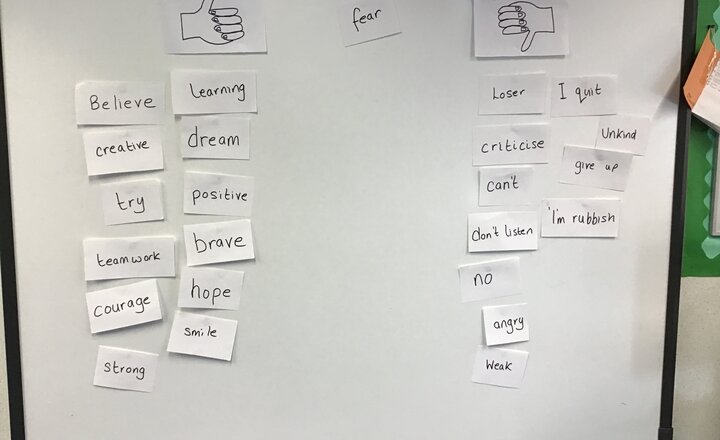 fear
Believe
learning
creative
dream
try
positive
teamwork
brave
courage
hope
smile
strong
Loser
I quit
criticise
Unkind
give up
can't
don't listen
'I'm rubbish
no
angry
Weak